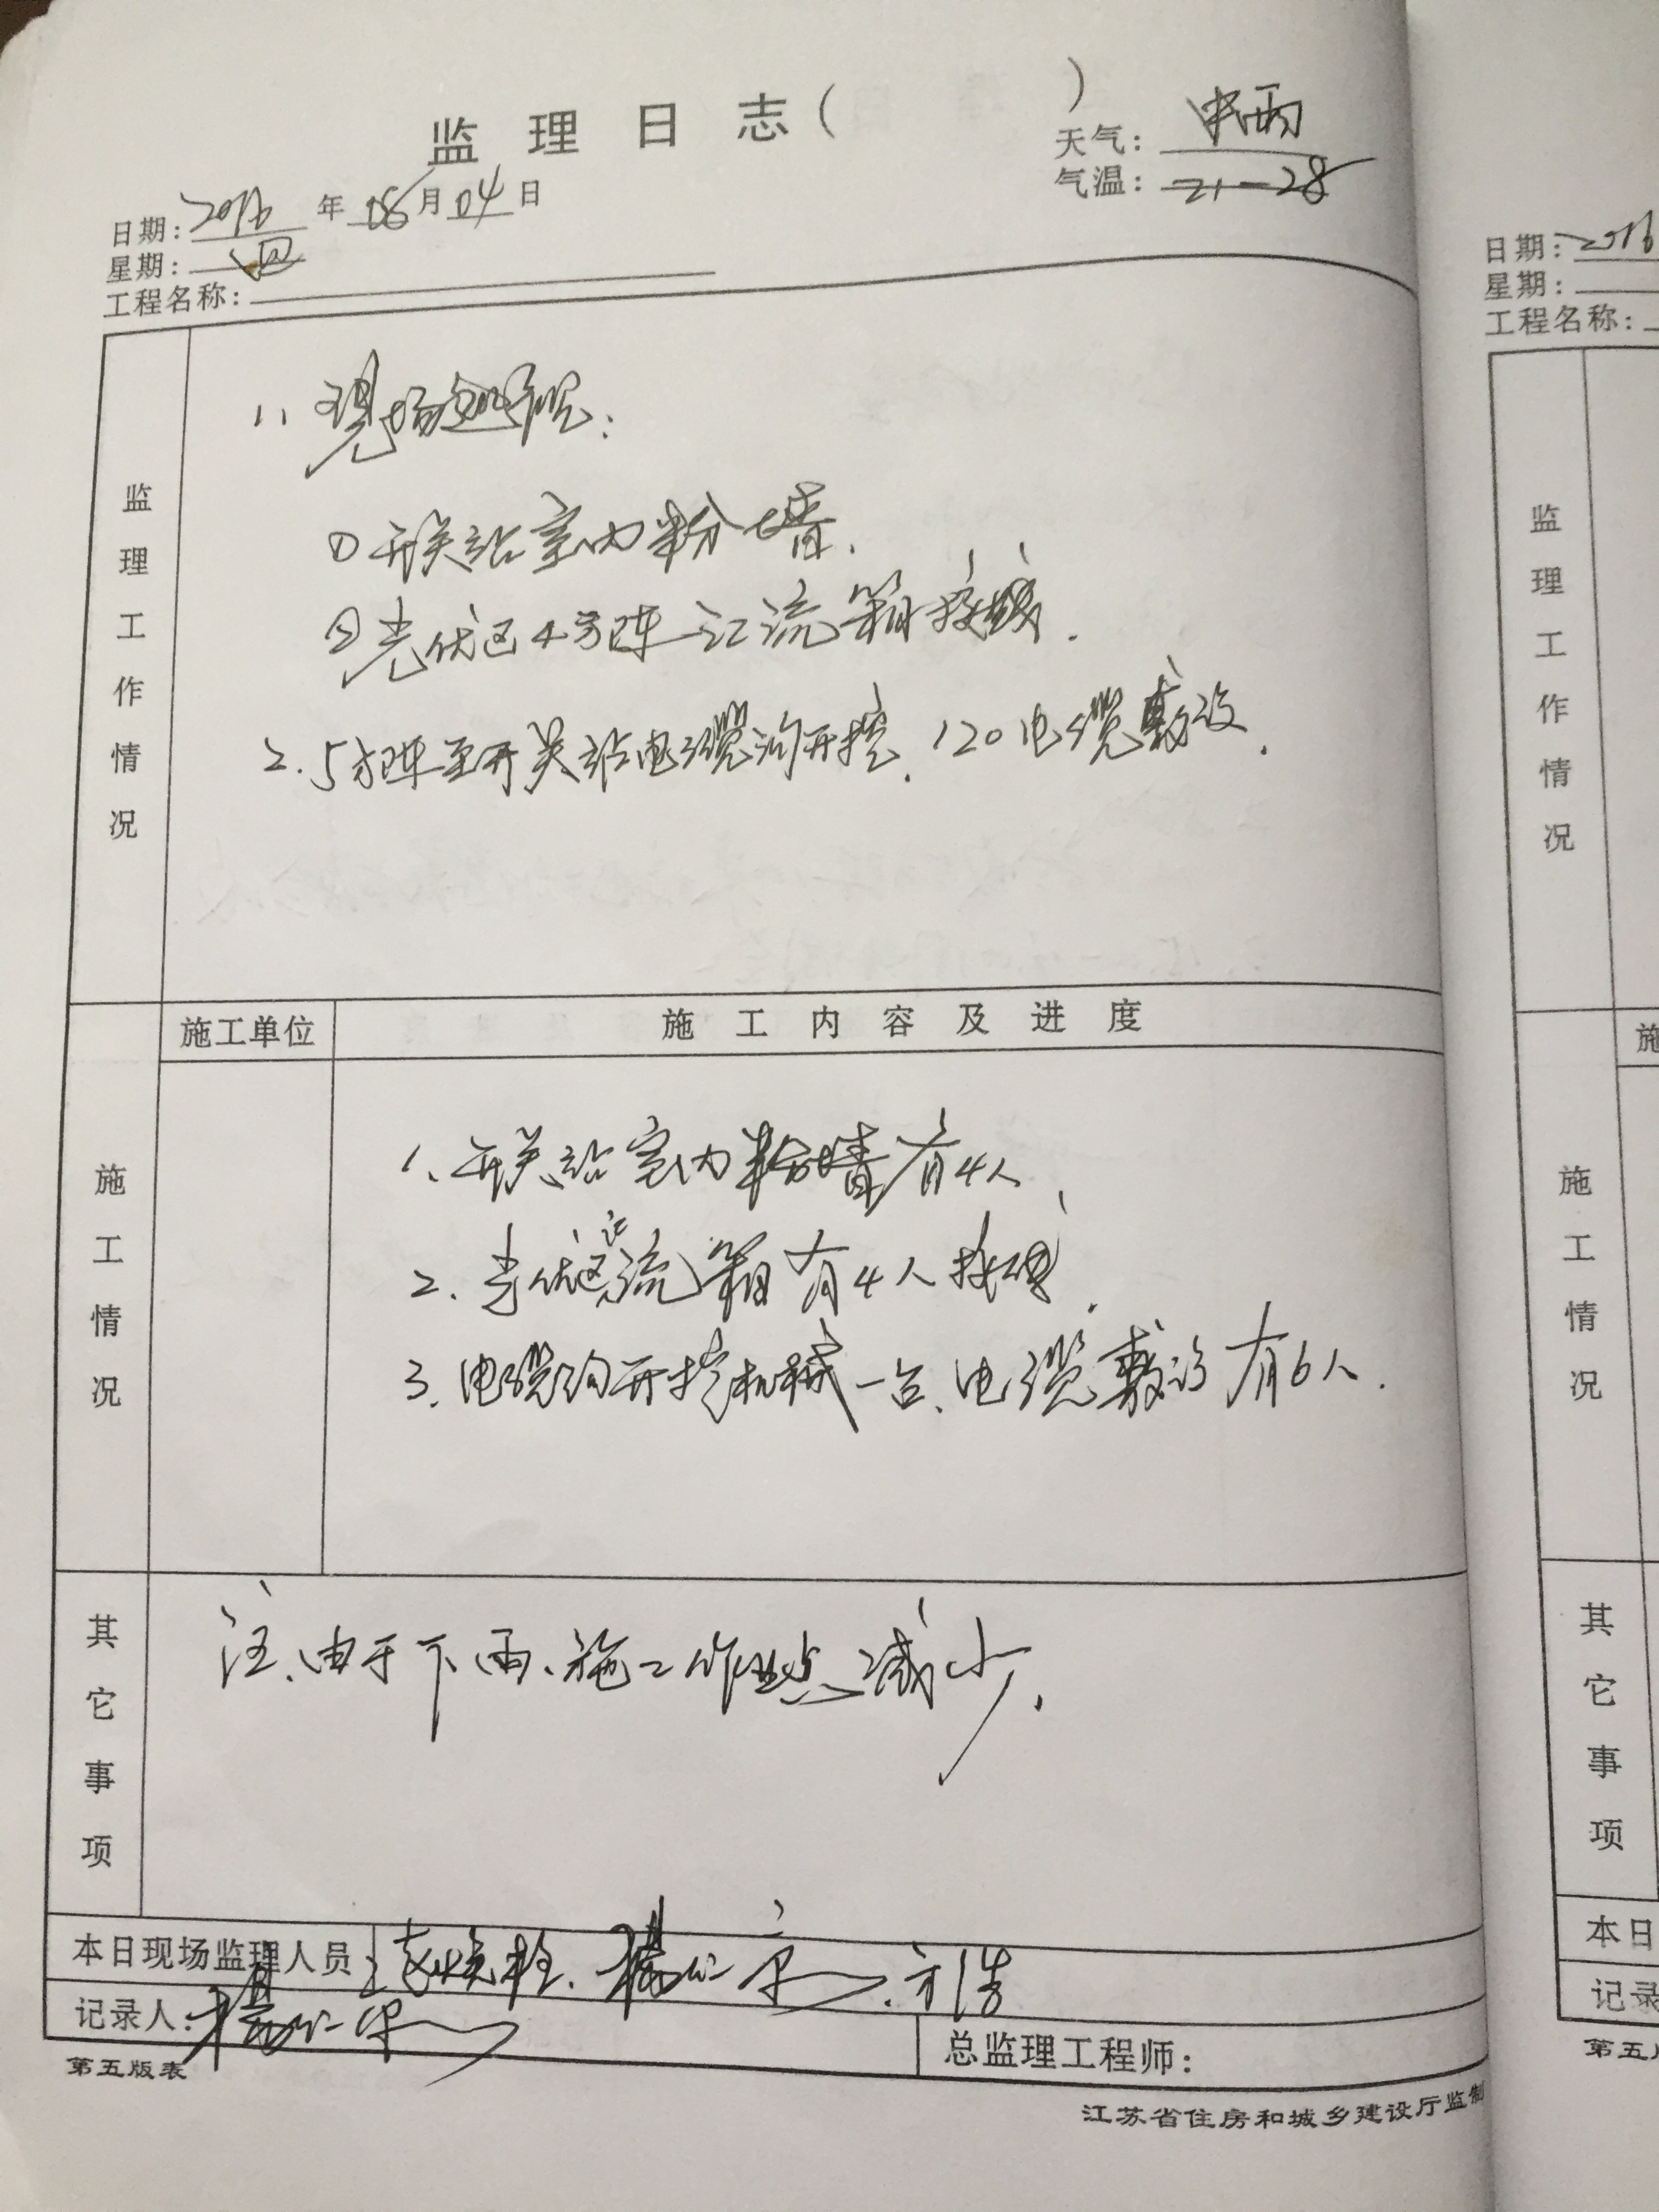 监理日志( )
天气: 中雨
气温: 21-28
日期: 2016 年 08 月 04 日
星期: 四
工程名称:
监理工作情况
1、现场巡视:
①开关站室内粉墙.
②光伏区4号阵汇流箱接线.
2.5方阵至开关站电缆沟开挖.120电缆敷设.
施工情况
施工单位
施工内容及进度
1、开关站室内粉墙有4人
2、光伏区汇流箱有4人接
3.电缆沟开挖机械一台、电缆敷设有6人.
其它事项
注、由于下雨、施工作业点减少.
本日现场监理人员
方浩
记录人:
总监理工程师:
第五版表
江苏省住房和城乡建设厅监制
日期: 2016
星期:
工程名称:
监理工作情况
施
施工情况
其它事项
本日
记录
第五